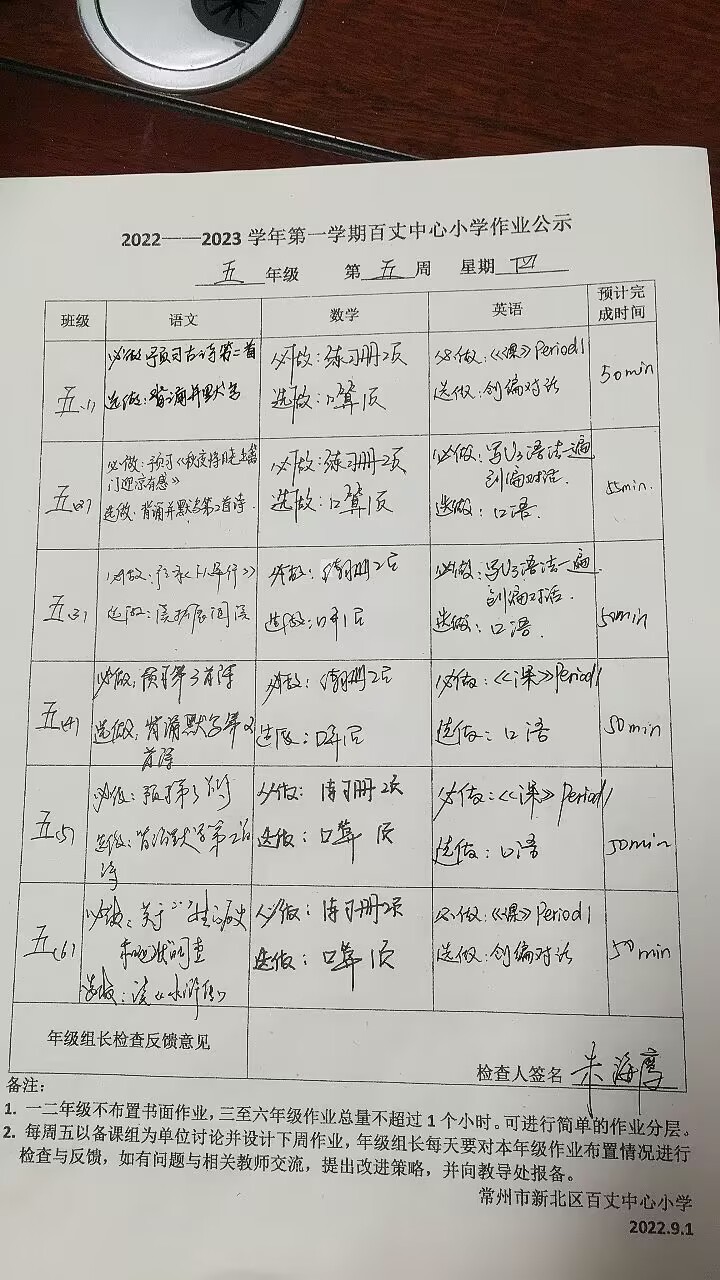 2022——2023 学年第一学期百丈中心小学作业公示
五 年级 第 五 周 星期 四
班级 语文 数学 英语 预计完成时间
五(1)
必做:预习古诗第二首
选做:背诵并默写
必做:练习册2页
选做:口算1页
必做:《课》Period1
选做:创编对话
50min
五(2)
必做:预习《秋夜将晓出篱
门迎凉有感》
选做:背诵并默写第2首诗.
必做:练习册2页
选做:口算1页
必做:写U3语法一遍
创编对话.
选做:口语.
55min.
五(3)
必做:
选做:
必做:练习册2页
选做:口算1页
必做:写U3语法一遍.
创编对话.
选做:口语.
50min
五(4)
必做:预习第3首诗
选做:背诵默写第2
首诗
必做:练习册2页
选做:口算1页
必做:《课》Period1
选做:口语
50min
五(5)
必做:预习第3首诗
选做:背诵默写第2首
诗
必做:练习册2页
选做:口算 1页
必做:《课》Period1
选做:口语
50min
五(6)
必做:关于"李"姓的历史
和现状的调查
选做:读《水浒传》
必做:练习册2页
选做:口算 1页
必做:《课》Period1
选做:创编对话
50min
年级组长检查反馈意见
检查人签名 朱海
备注:
1. 一二年级不布置书面作业,三至六年级作业总量不超过 1 个小时。可进行简单的作业分层。
2. 每周五以备课组为单位讨论并设计下周作业,年级组长每天要对本年级作业布置情况进行
检查与反馈,如有问题与相关教师交流,提出改进策略,并向教导处报备。
常州市新北区百丈中心小学
2022.9.1